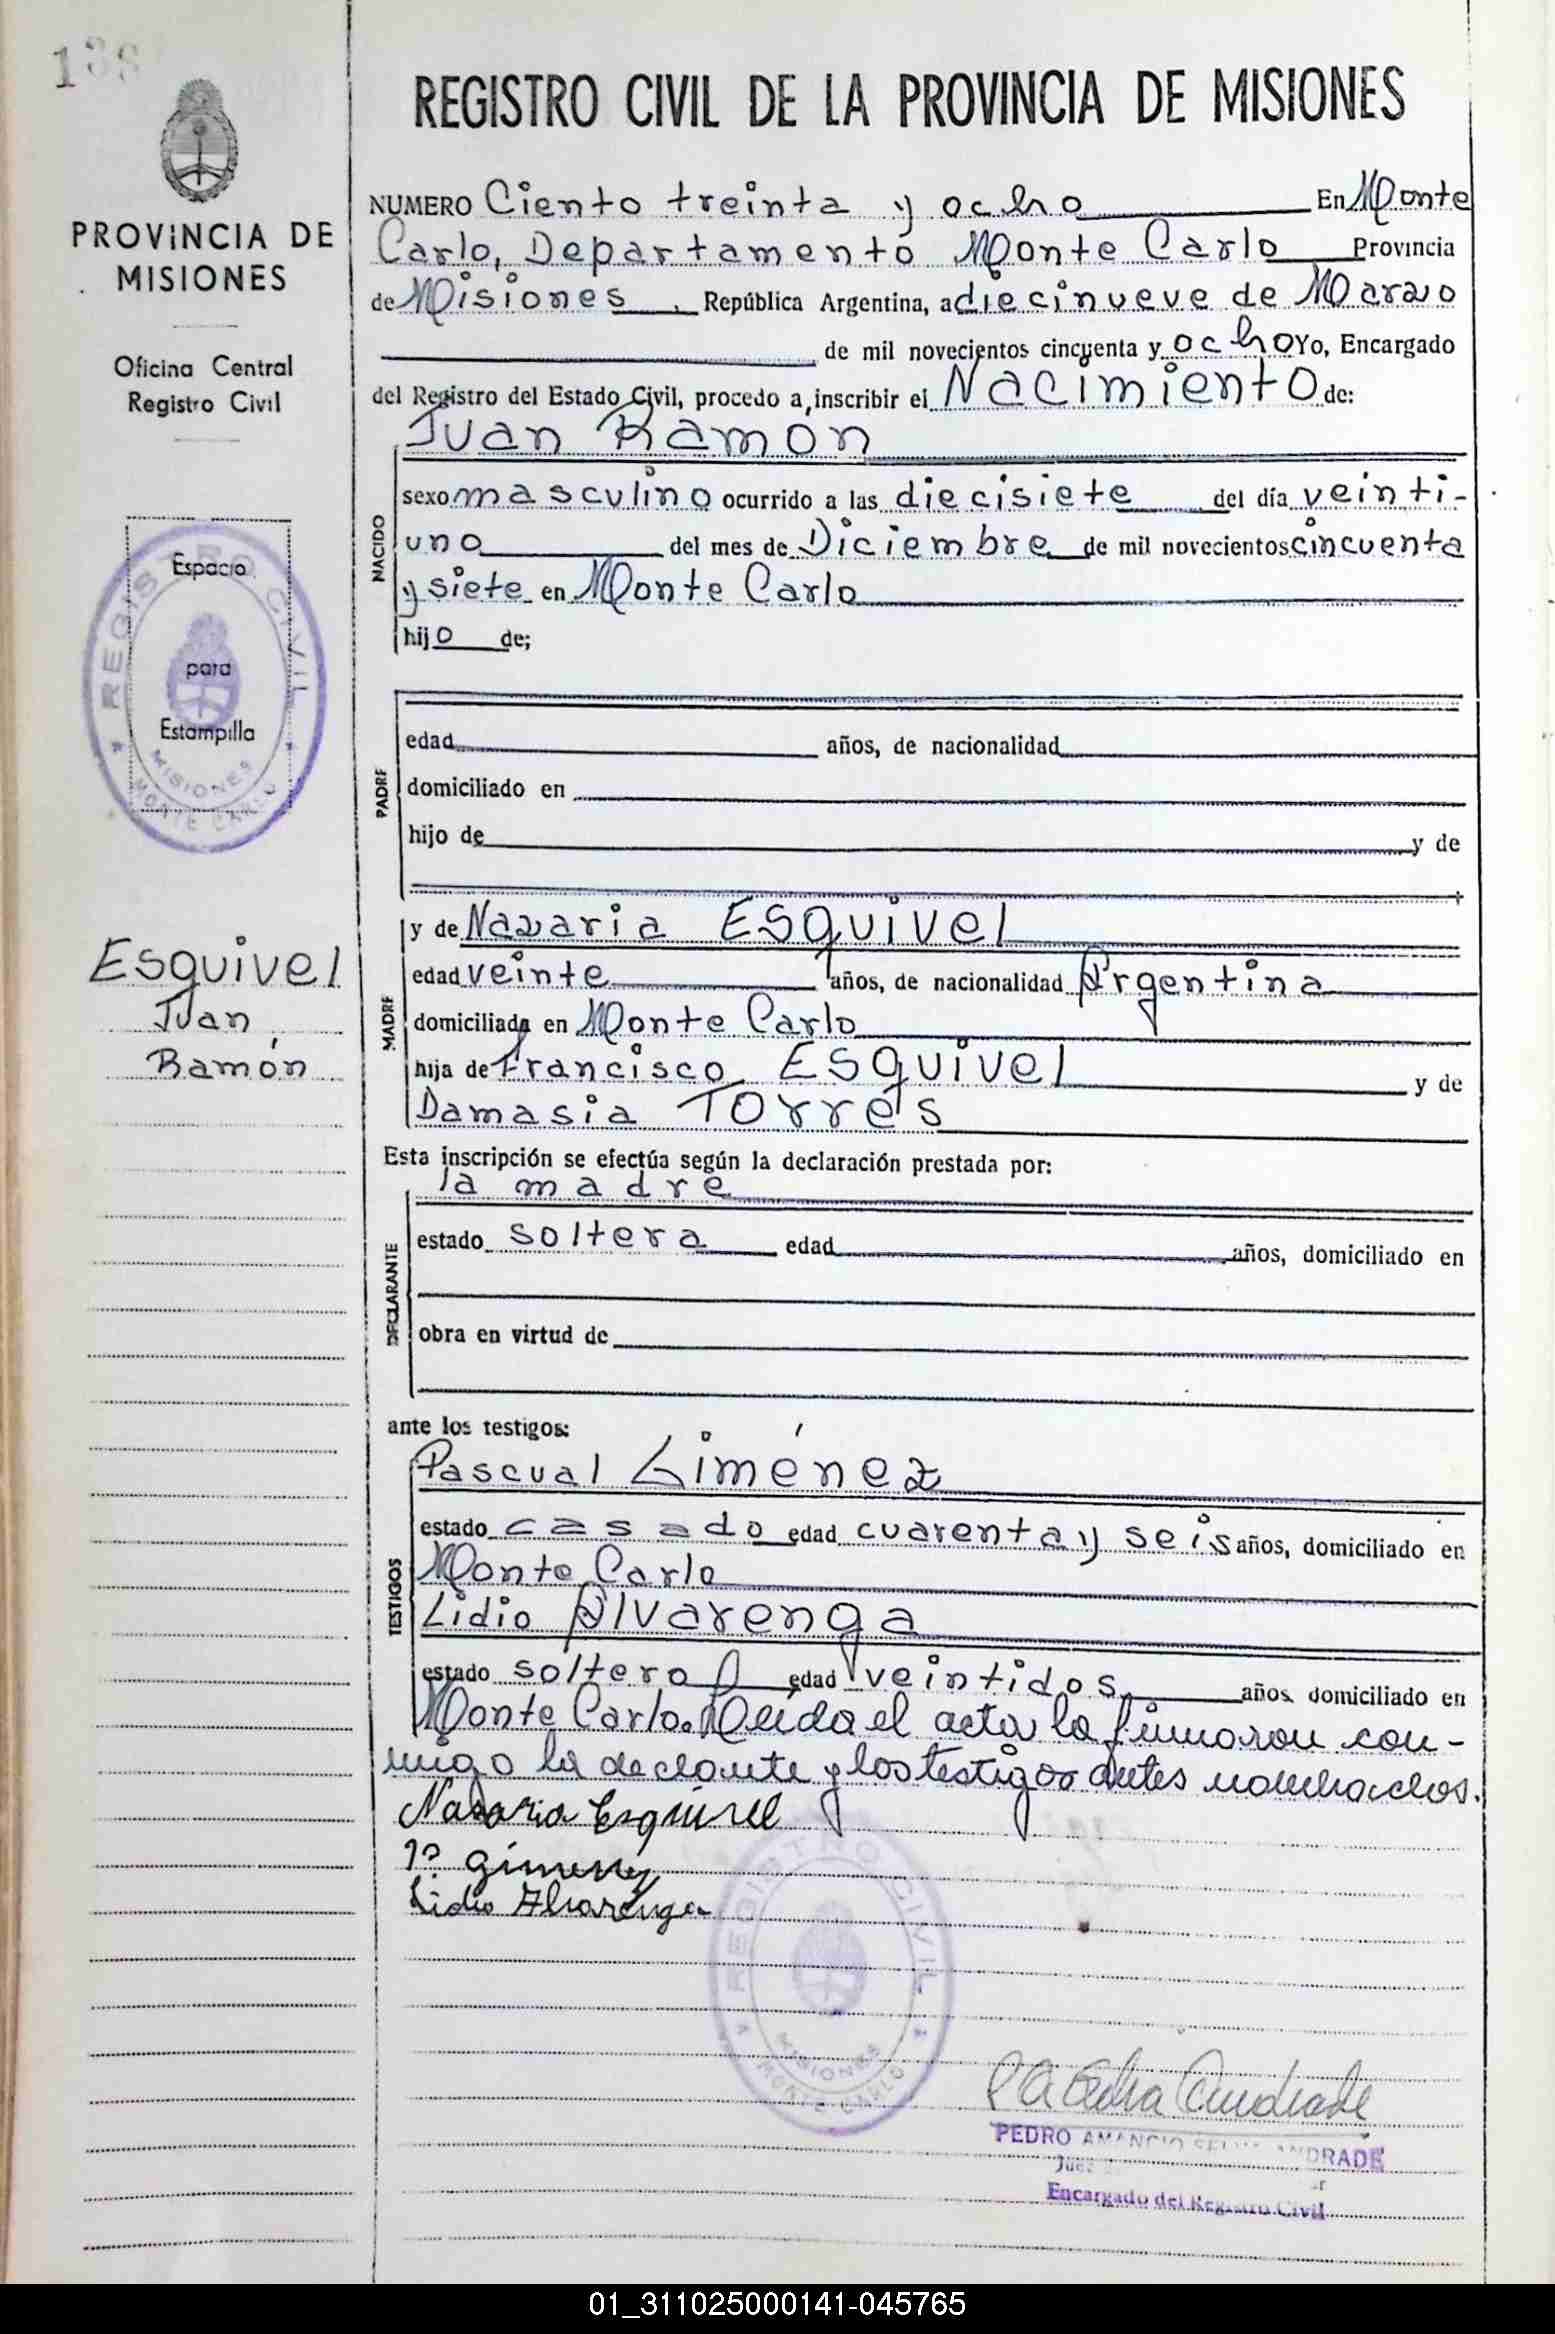 138
PROVINCIA DE
MISIONES
Oficina Central
Registro Civil
Espacio
para
Estampilla
REGISTRO CIVIL
MISIONES
MONTE CARLO
Esquivel
Juan
Ramón
REGISTRO CIVIL DE LA PROVINCIA DE MISIONES
NUMERO Ciento treinta y ocho En Monte
Carlo, Departamento Monte Carlo Provincia
de Misiones, República Argentina, a diecinueve de Marzo
de mil novecientos cincuenta y ocho Yo, Encargado
del Registro del Estado Civil, procedo a inscribir el Nacimiento de:
Juan Ramón
NACIDO
sexo masculino ocurrido a las diecisiete del día veinti-
uno del mes de Diciembre de mil novecientos cincuenta
y siete en Monte Carlo
hijo de;
PADRE
edad años, de nacionalidad
domiciliado en
hijo de y de
MADRE
y de Nazaria Esquivel
edad veinte años, de nacionalidad Argentina
domiciliada en Monte Carlo
hija de Francisco Esquivel y de
Damasia Torres
Esta inscripción se efectúa según la declaración prestada por:
DECLARANTE
la madre
estado soltera edad años, domiciliado en
obra en virtud de
ante los testigos:
TESTIGOS
Pascual Giménez
estado casado edad cuarenta y seis años, domiciliado en
Monte Carlo
Lidio Alvarenga
estado soltero edad veintidos años domiciliado en
Monte Carlo. Leída el acta la firmaron con-
migo la declarante y los testigos antes nombrados.
Nazaria Esquivel
P. Gimenez
Lidio Alvarenga
REGISTRO CIVIL
MISIONES
MONTE CARLO
Andrade
PEDRO AMANCIO ANDRADE
Juez
Encargado del Registro Civil
01_311025000141-045765